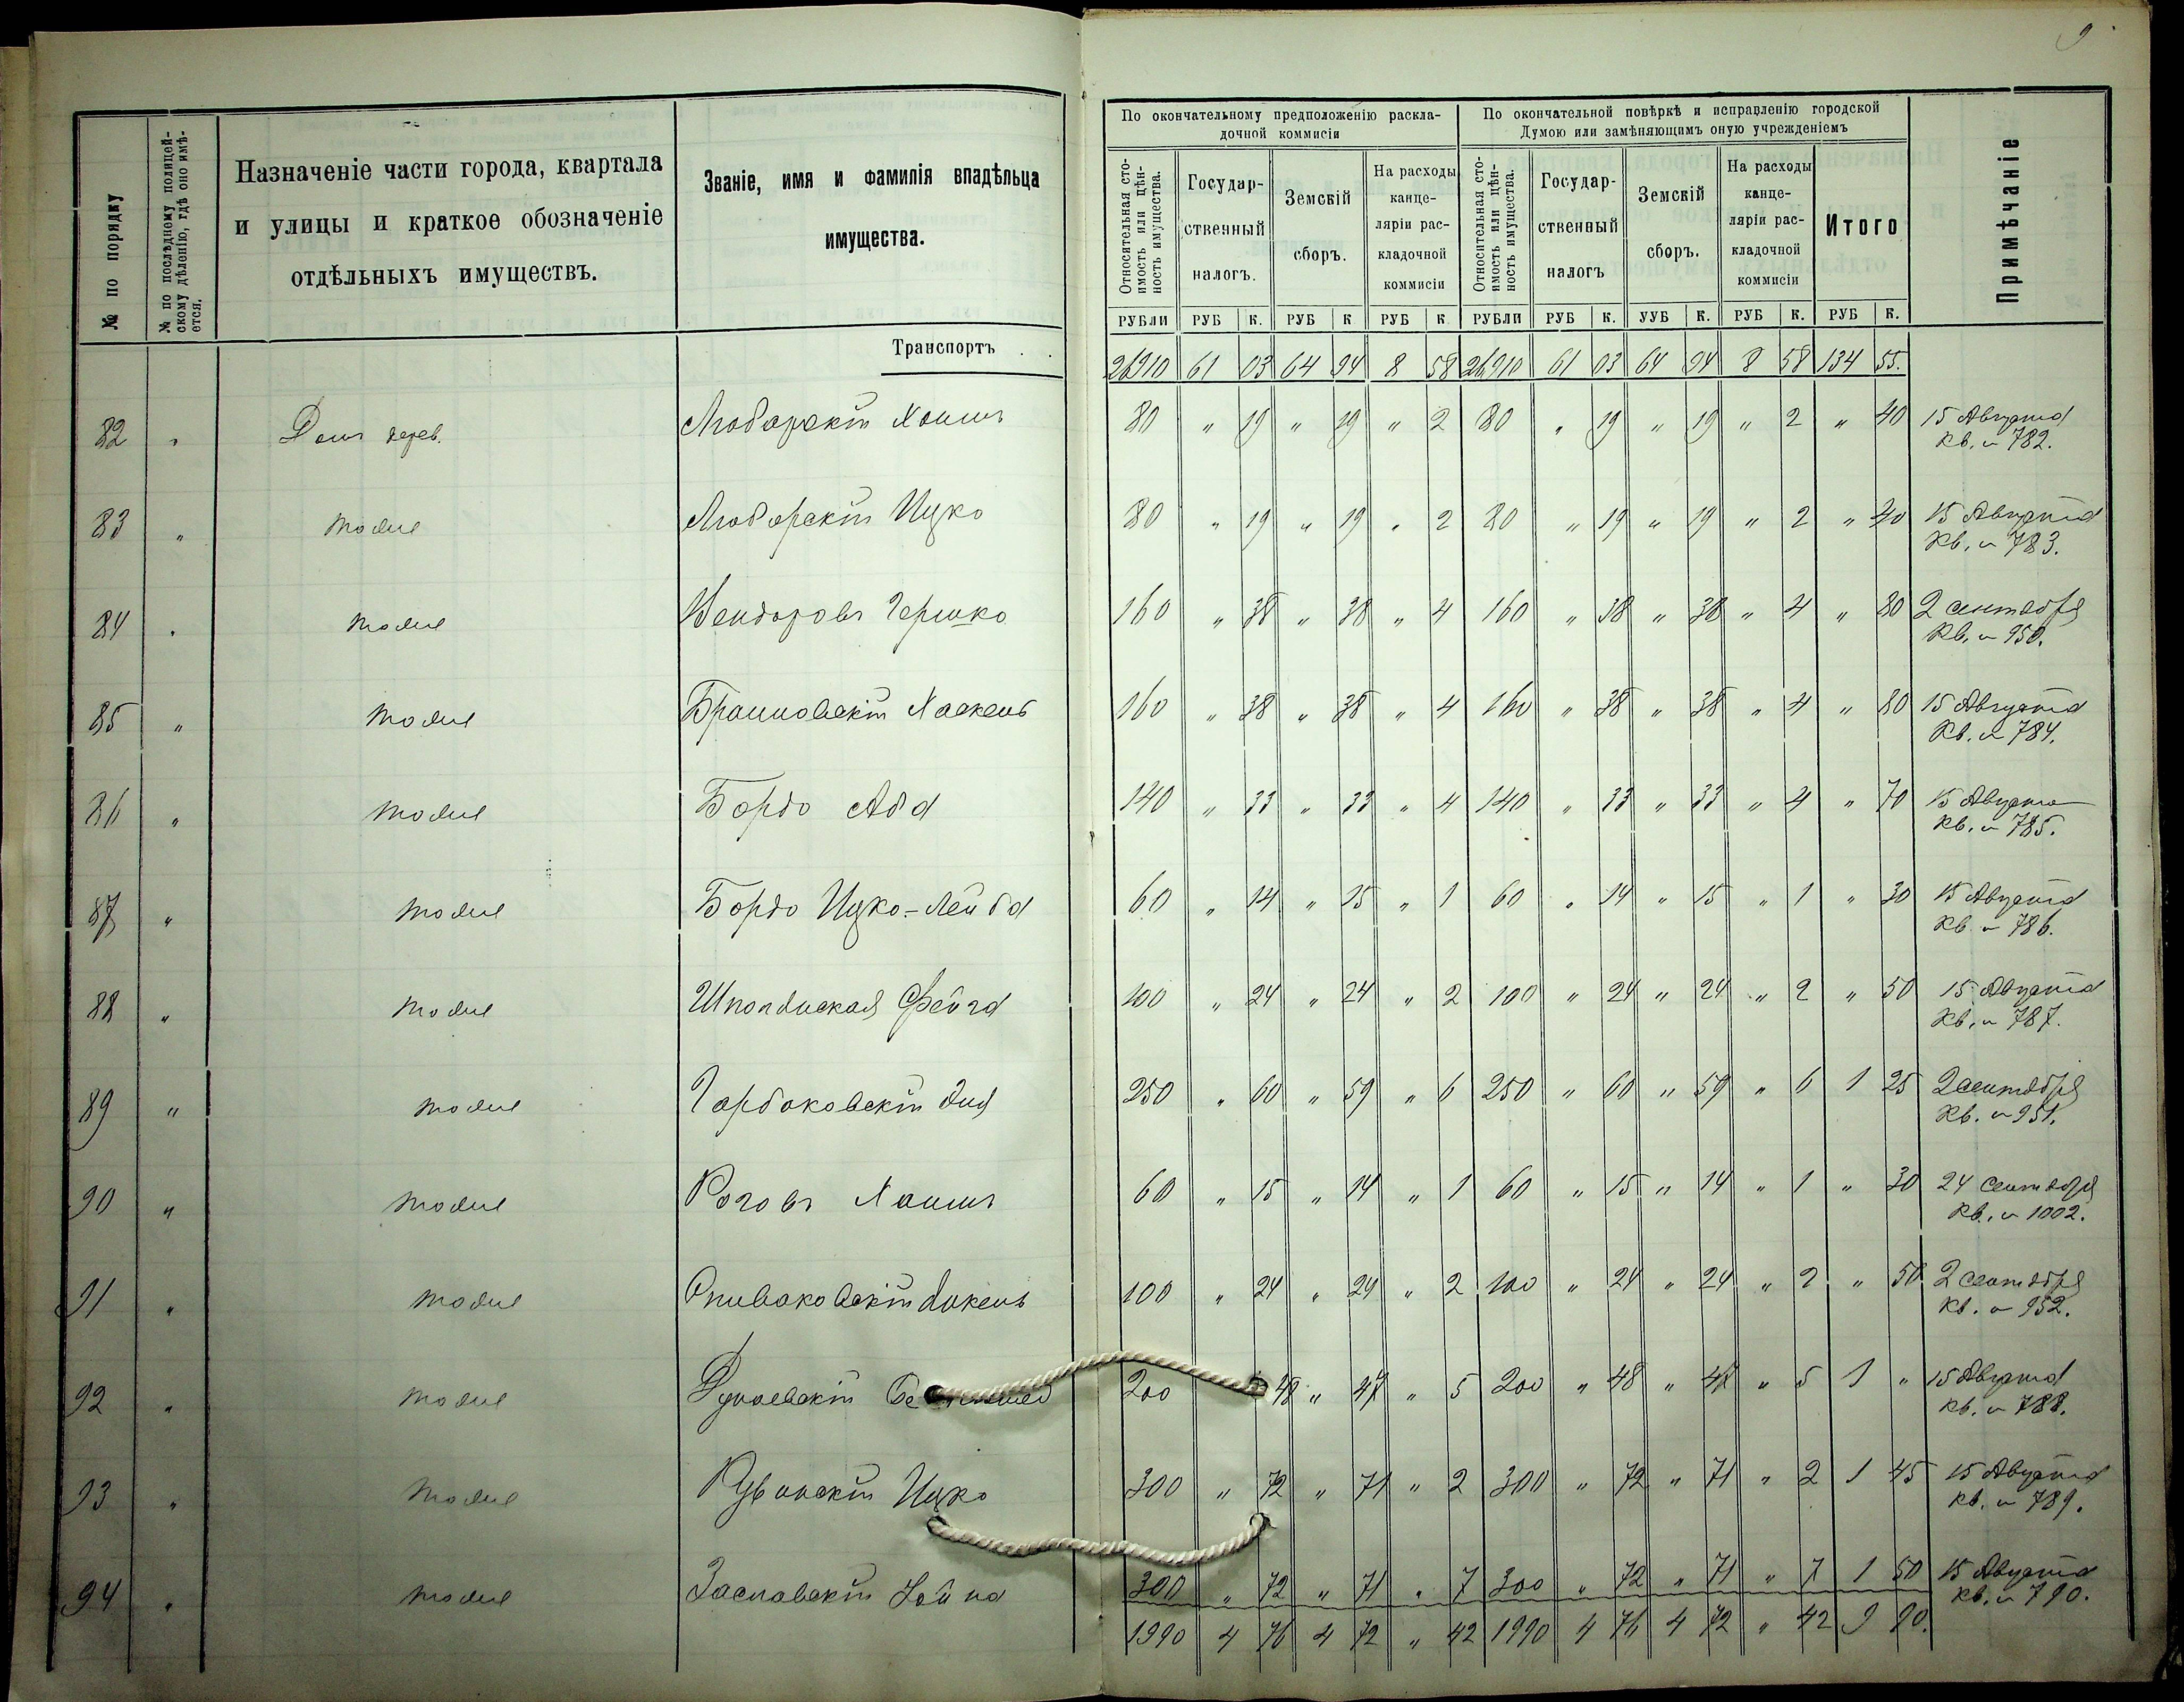 9
№ по порядку
№ по послѣднему полицей-
скому дѣленію, гдѣ оно имѣ-
ется.
Назначеніе части города, квартала
и улицы и краткое обозначеніе
отдѣльныхъ имуществъ.
Званіе, имя и фамилія владѣльца
имущества.
По окончательному предположенію раскла-
дочной коммисіи
По окончательной повѣркѣ и исправленію городской
Думою или замѣняющимъ оную учрежденіемъ
Относительная сто-
имость или цѣн-
ность имущества.
Государ-
ственный
налогъ.
Земскій
сборъ.
На расходы
канце-
ляріи рас-
кладочной
коммисіи
Относительная сто-
имость или цѣн-
ность имущества.
Государ-
ственный
налогъ
Земскій
сборъ.
На расходы
канце-
ляріи рас-
кладочной
коммисіи
Итого
Примѣчаніе
РУБЛИ РУБ К. РУБ К РУБ К РУБЛИ РУБ К. УУБ К. РУБ К. РУБ К.
Транспортъ . . 26910 61 03 64 94 8 58 26910 61 03 64 94 8 58 134 55.
82 " Домъ дерев. Любарскій Хаимъ 80 " 19 " 19 " 2 80 " 19 " 19 " 2 " 40 15 Августа
Кв. № 782.
83 " тоже Любарскій Ицко 80 " 19 " 19 " 2 80 " 19 " 19 " 2 " 40 15 Августа
Кв. № 783.
84 " тоже Бендоровъ Гершко 160 " 38 " 38 " 4 160 " 38 " 38 " 4 " 80 2 сентября
Кв. № 950.
85 " тоже Браиловскій Хаскель 160 " 38 " 38 " 4 160 " 38 " 38 " 4 " 80 15 Августа
Кв. № 784.
86 " тоже Бордо Аба 140 " 33 " 33 " 4 140 " 33 " 33 " 4 " 70 15 Августа
Кв. № 785.
87 " тоже Бордо Ицко-Лейба 60 " 14 " 15 " 1 60 " 14 " 15 " 1 " 30 15 Августа
Кв. № 786.
88 " тоже Шполянская Фейга 100 " 24 " 24 " 2 100 " 24 " 24 " 2 " 50 15 Августа
Кв. № 787.
89 " тоже Гарбаковскій 250 " 60 " 59 " 6 250 " 60 " 59 " 6 1 25 2 сентября
Кв. № 951.
90 " тоже Роговъ Хаимъ 60 " 15 " 14 " 1 60 " 15 " 14 " 1 " 30 24 сентября
Кв. № 1002.
91 " тоже Спиваковскій 100 " 24 " 24 " 2 100 " 24 " 24 " 2 " 50 2 сентября
Кв. № 952.
92 " тоже Дунаевскій 200 48 " 47 " 5 200 " 48 " 47 " 5 1 " 15 Августа
Кв. № 788.
93 " тоже Ицко 300 " 72 " 71 " 2 300 " 72 " 71 " 2 1 45 15 Августа
Кв. № 789.
94 " тоже Заславскій Хайна 300 " 72 " 71 " 7 300 " 72 " 71 " 7 1 50 15 Августа
Кв. № 790.
1990 4 76 4 72 " 42 1990 4 76 4 72 " 42 9 90.